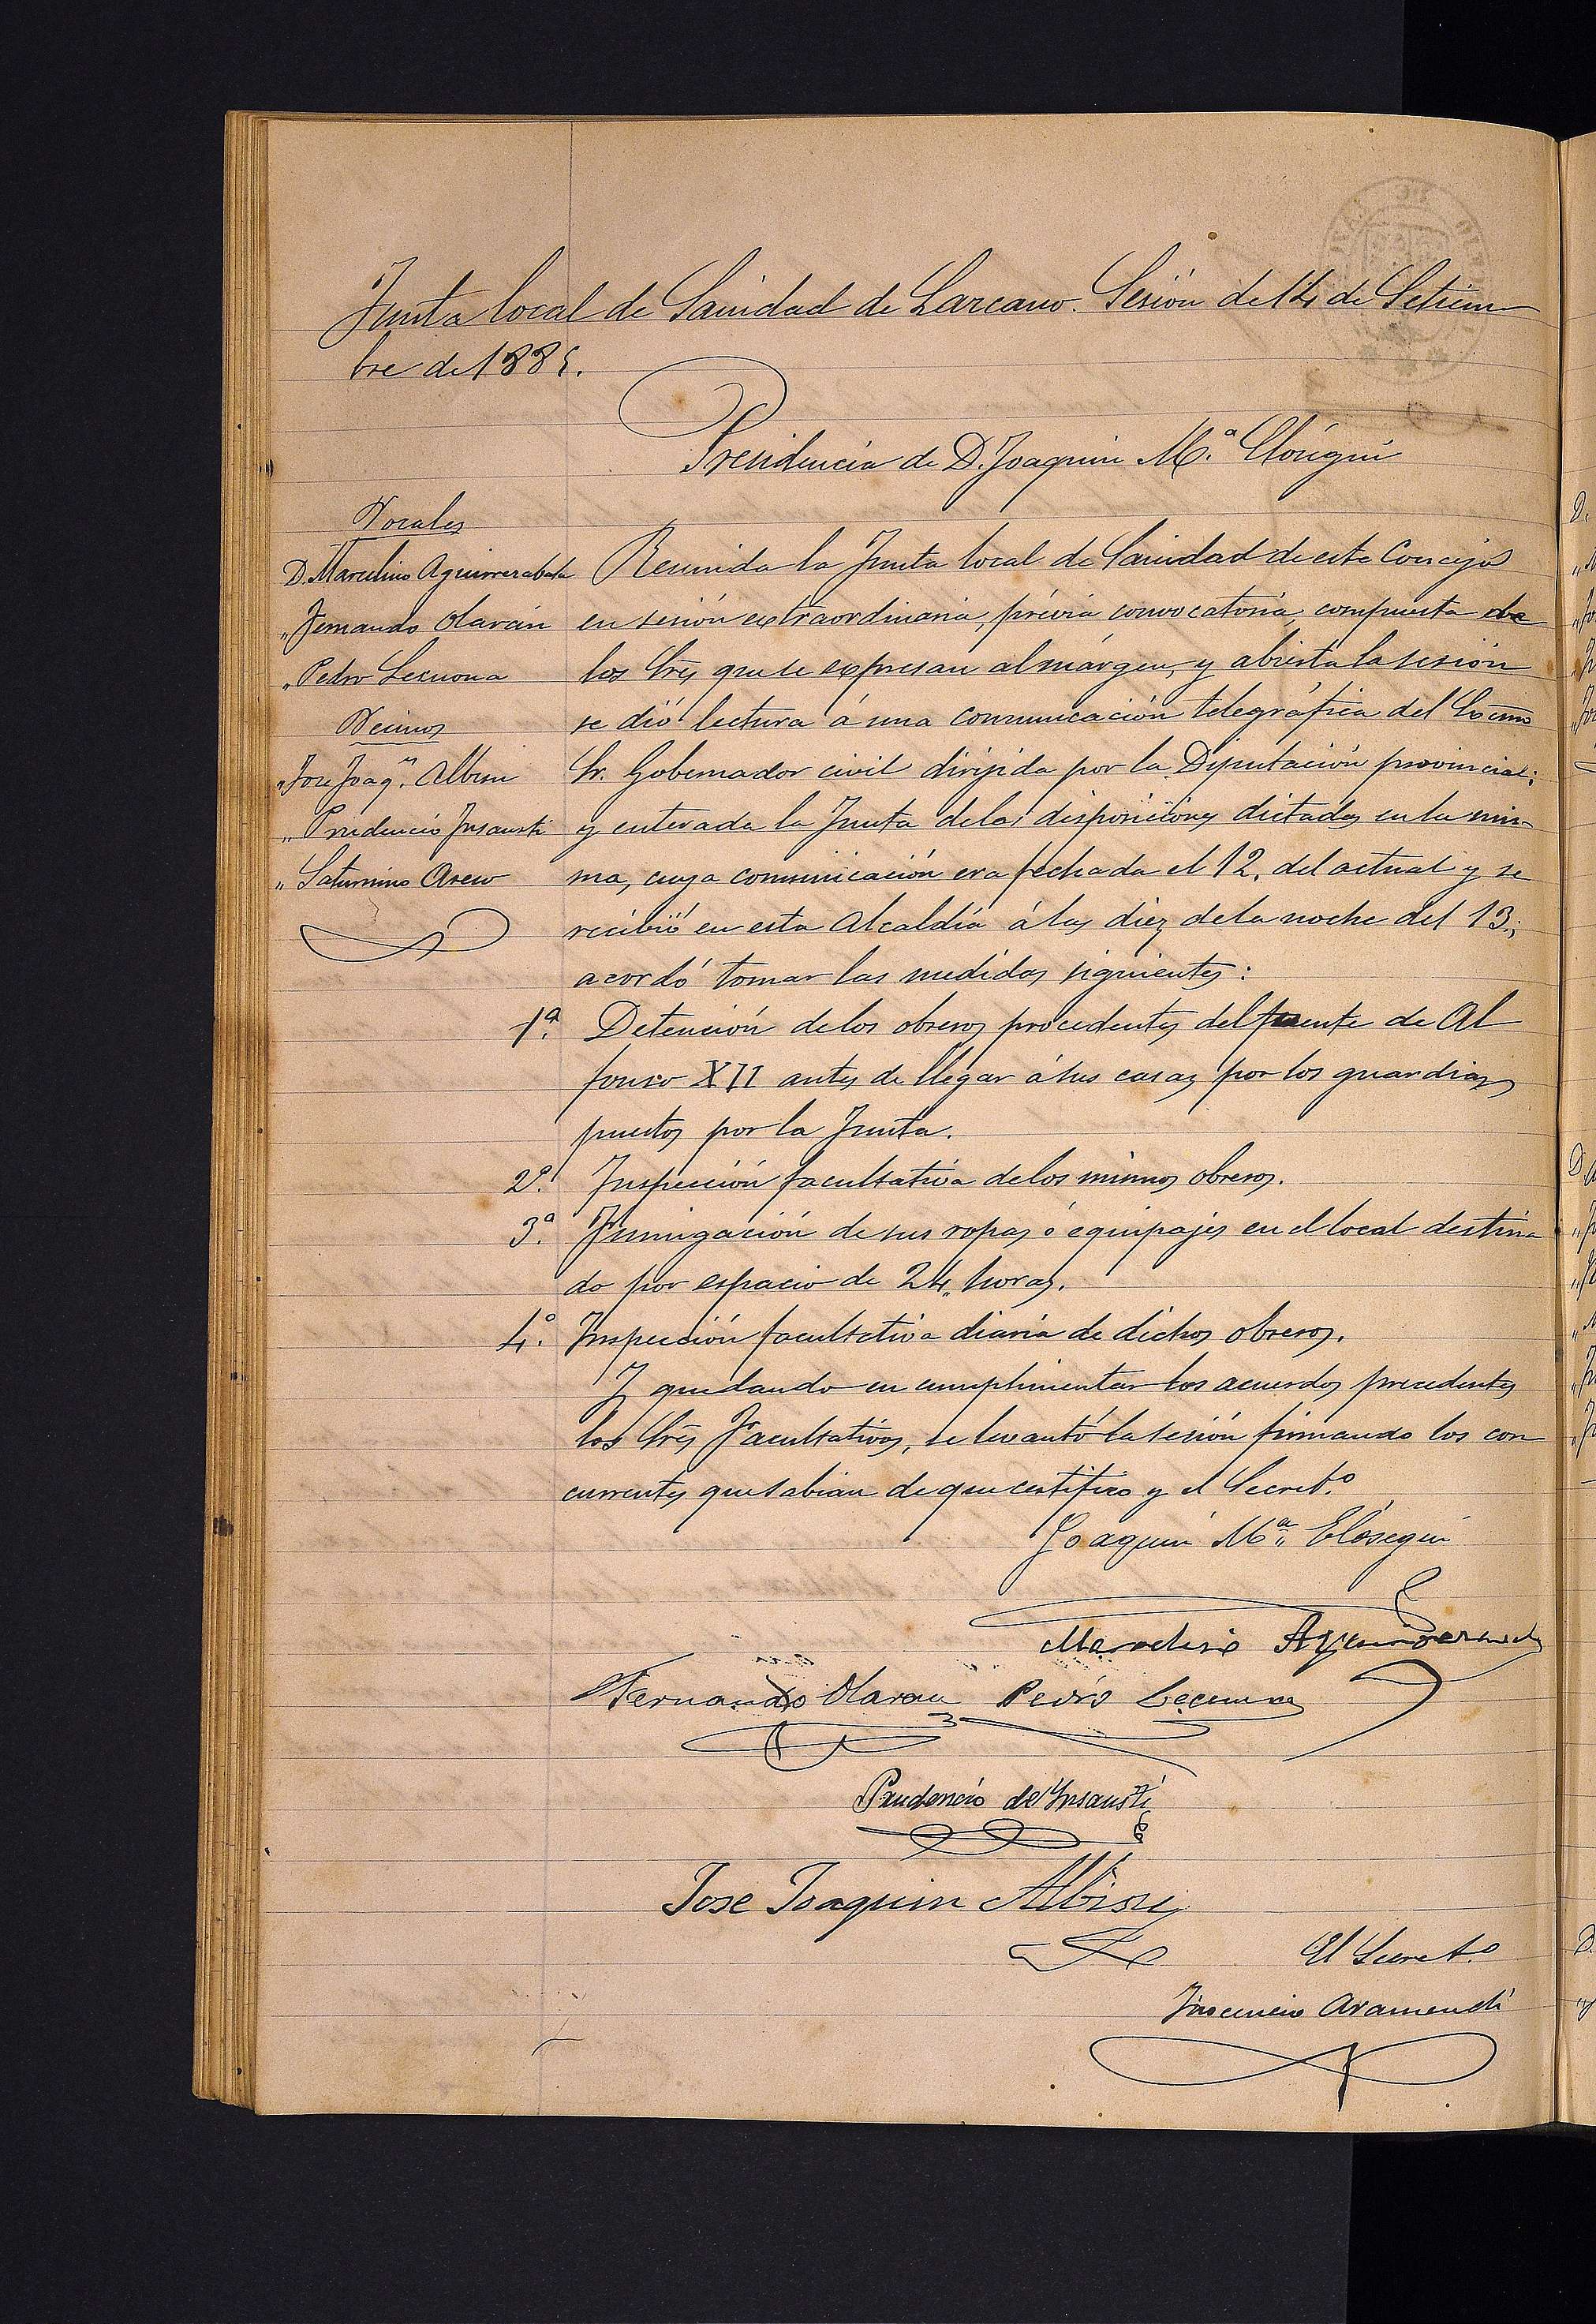 Junta local de Sanidad de Lazcano. Sesión de 14 de Setiem
bre de 1885.
Presidencia de D. Joaquin M.ª Elósegui
Vocales
D. Marcelino Aguirrezabala
„ Fernando Olarán
„ Pedro Lecuona
Vecinos
„ Jose Joaqn. Albisu
„ Prudencio Insausti
„ Saturnino
Reunida la Junta local de Sanidad de este Concejo
en sesión extraordinaria, prévia convocatoria, compuesta de
los Sres. que se expresan al márgen, y abierta la sesión
se dió lectura á una comunicación telegráfica del Excmo
Sr. Gobernador civil dirijida por la Diputación provincial;
y enterada la Junta de las disposiciones dictadas en la mis-
ma, cuya comunicación era fechada el 12, del actual y se
recibió en esta Alcaldía á las diez de la noche del 13.;
acordó tomar las medidas siguientes:
1ª. Detención de los obreros procedentes del puente de Al
fonso XII antes de llegar á sus casas por los guardias
puestos por la Junta.
2ª. Inspección facultativa de los mismos obreros.
3ª. Fumigación de sus ropas ó equipajes en el local destina
do por espacio de 24„ horas.
4º. Inspección facultativa diaria de dichos obreros.
Y quedando en cumplimentar los acuerdos precedentes
los Sres Facultativos, se levantó la sesión firmando los con
currentes que sabian de que certifico yo el Secret.º
Joaquin Mª. Elósegui
Marcelino
Fernando Olaran Pedro Lecuona
Prudencio de Insausti
Jose Joaquin Albisu
El Secret.º
Inocencio Aramendi